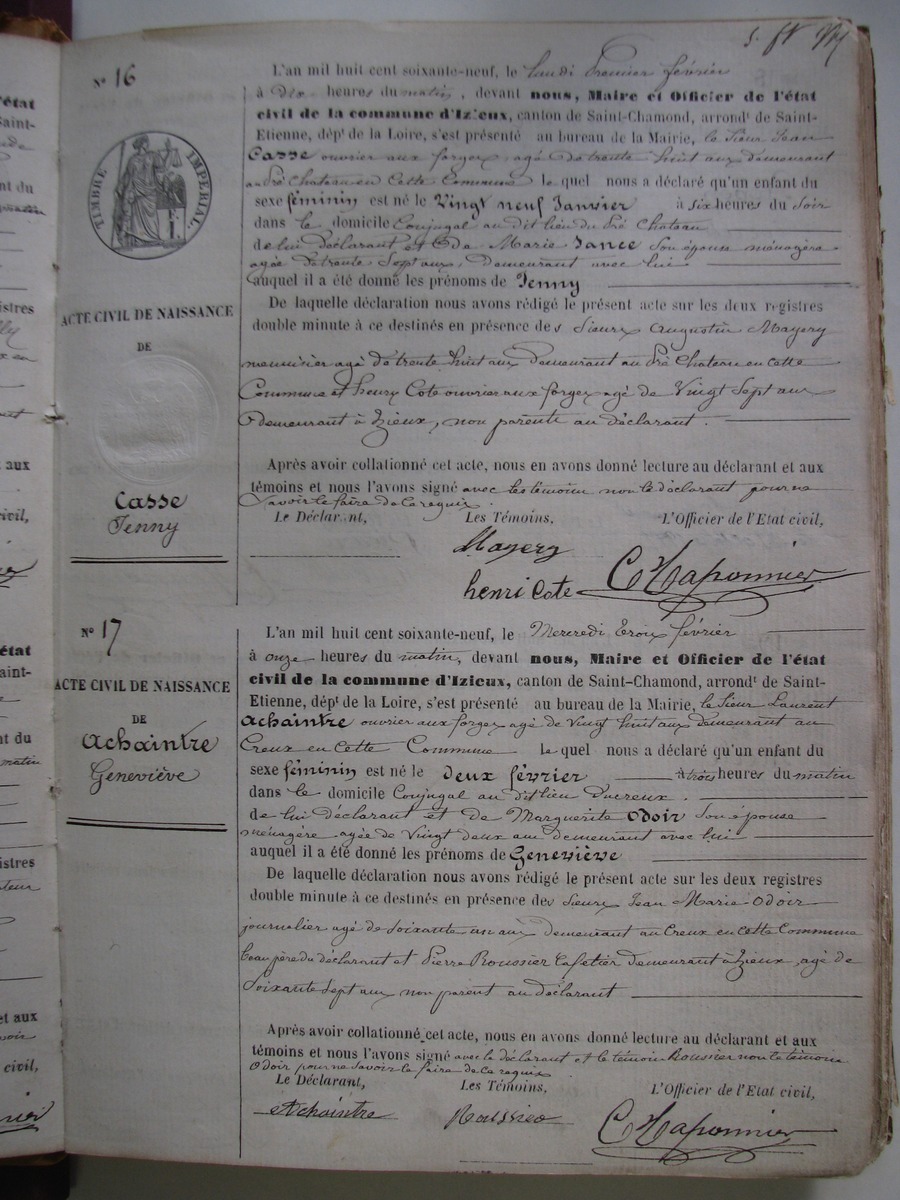 Nº 16
TIMBRE IMPÉRIAL.
ACTE CIVIL DE NAISSANCE
DE
Casse
Jenny
L'an mil huit cent soixante-neuf, le lundi Premier février
à Dix heures du matin, devant nous, Maire et Officier de l'état
civil de la commune d'Izieux, canton de Saint-Chamond, arrond^t de Saint-
Etienne, dép^t de la Loire, s'est présenté au bureau de la Mairie, le Sieur Jean
Casse ouvrier aux forges, agé de trente huit ans demeurant
au Pré Chateau en Cette Commune le quel nous a déclaré qu'un enfant du
sexe féminin est né le Vingt neuf Janvier à six heures du soir
dans le domicile Conjugal au dit lieu du Pré Chateau
de lui Déclarant et de Marie Jance Son épouse ménagère
agée de trente Sept ans, Demeurant avec lui
auquel il a été donné les prénoms de Jenny
De laquelle déclaration nous avons rédigé le présent acte sur les deux registres
double minute à ce destinés en présence des Sieurs Augustin Mayery
menuisier agé de trente huit ans Demeurant au Pré Chateau en cette
Commune et henry Cote ouvrier aux forges agé de Vingt Sept ans
Demeurant à Izieux, non parents au déclarant.
Après avoir collationné cet acte, nous en avons donné lecture au déclarant et aux
témoins et nous l'avons signé avec les témoins non le déclarant pour ne
Savoir le faire de ce requis
Le Déclarant, Les Témoins, L'Officier de l'Etat civil,
Mayery
henri Cote C Chaponnier
Nº 17
ACTE CIVIL DE NAISSANCE
DE
Achaintre
Geneviève
L'an mil huit cent soixante-neuf, le Mercredi Trois février
à onze heures du matin, devant nous, Maire et Officier de l'état
civil de la commune d'Izieux, canton de Saint-Chamond, arrond^t de Saint-
Etienne, dép^t de la Loire, s'est présenté au bureau de la Mairie, le Sieur Laurent
Achaintre ouvrier aux forges agé de Vingt huit ans demeurant au
Creux en Cette Commune le quel nous a déclaré qu'un enfant du
sexe féminin est né le Deux février à trois heures du matin
dans le domicile Conjugal au dit lieu Ducreux.
de lui déclarant et de Marguerite Odoir Son épouse
ménagère agée de Vingt deux ans demeurant avec lui
auquel il a été donné les prénoms de Geneviève
De laquelle déclaration nous avons rédigé le présent acte sur les deux registres
double minute à ce destinés en présence des Sieurs Jean Marie Odoir
journalier agé de soixante un ans demeurant au Creux en cette Commune
beau père du déclarant et Pierre Roussier Cafetier Demeurant à Izieux, agé de
Soixante Sept ans non parent au déclarant
Après avoir collationné cet acte, nous en avons donné lecture au déclarant et aux
témoins et nous l'avons signé avec le déclarant et le témoin Roussier non le témoin
Odoir pour ne savoir le faire de ce requis
Le Déclarant, Les Témoins, L'Officier de l'Etat civil,
Achaintre Roussier C Chaponnier